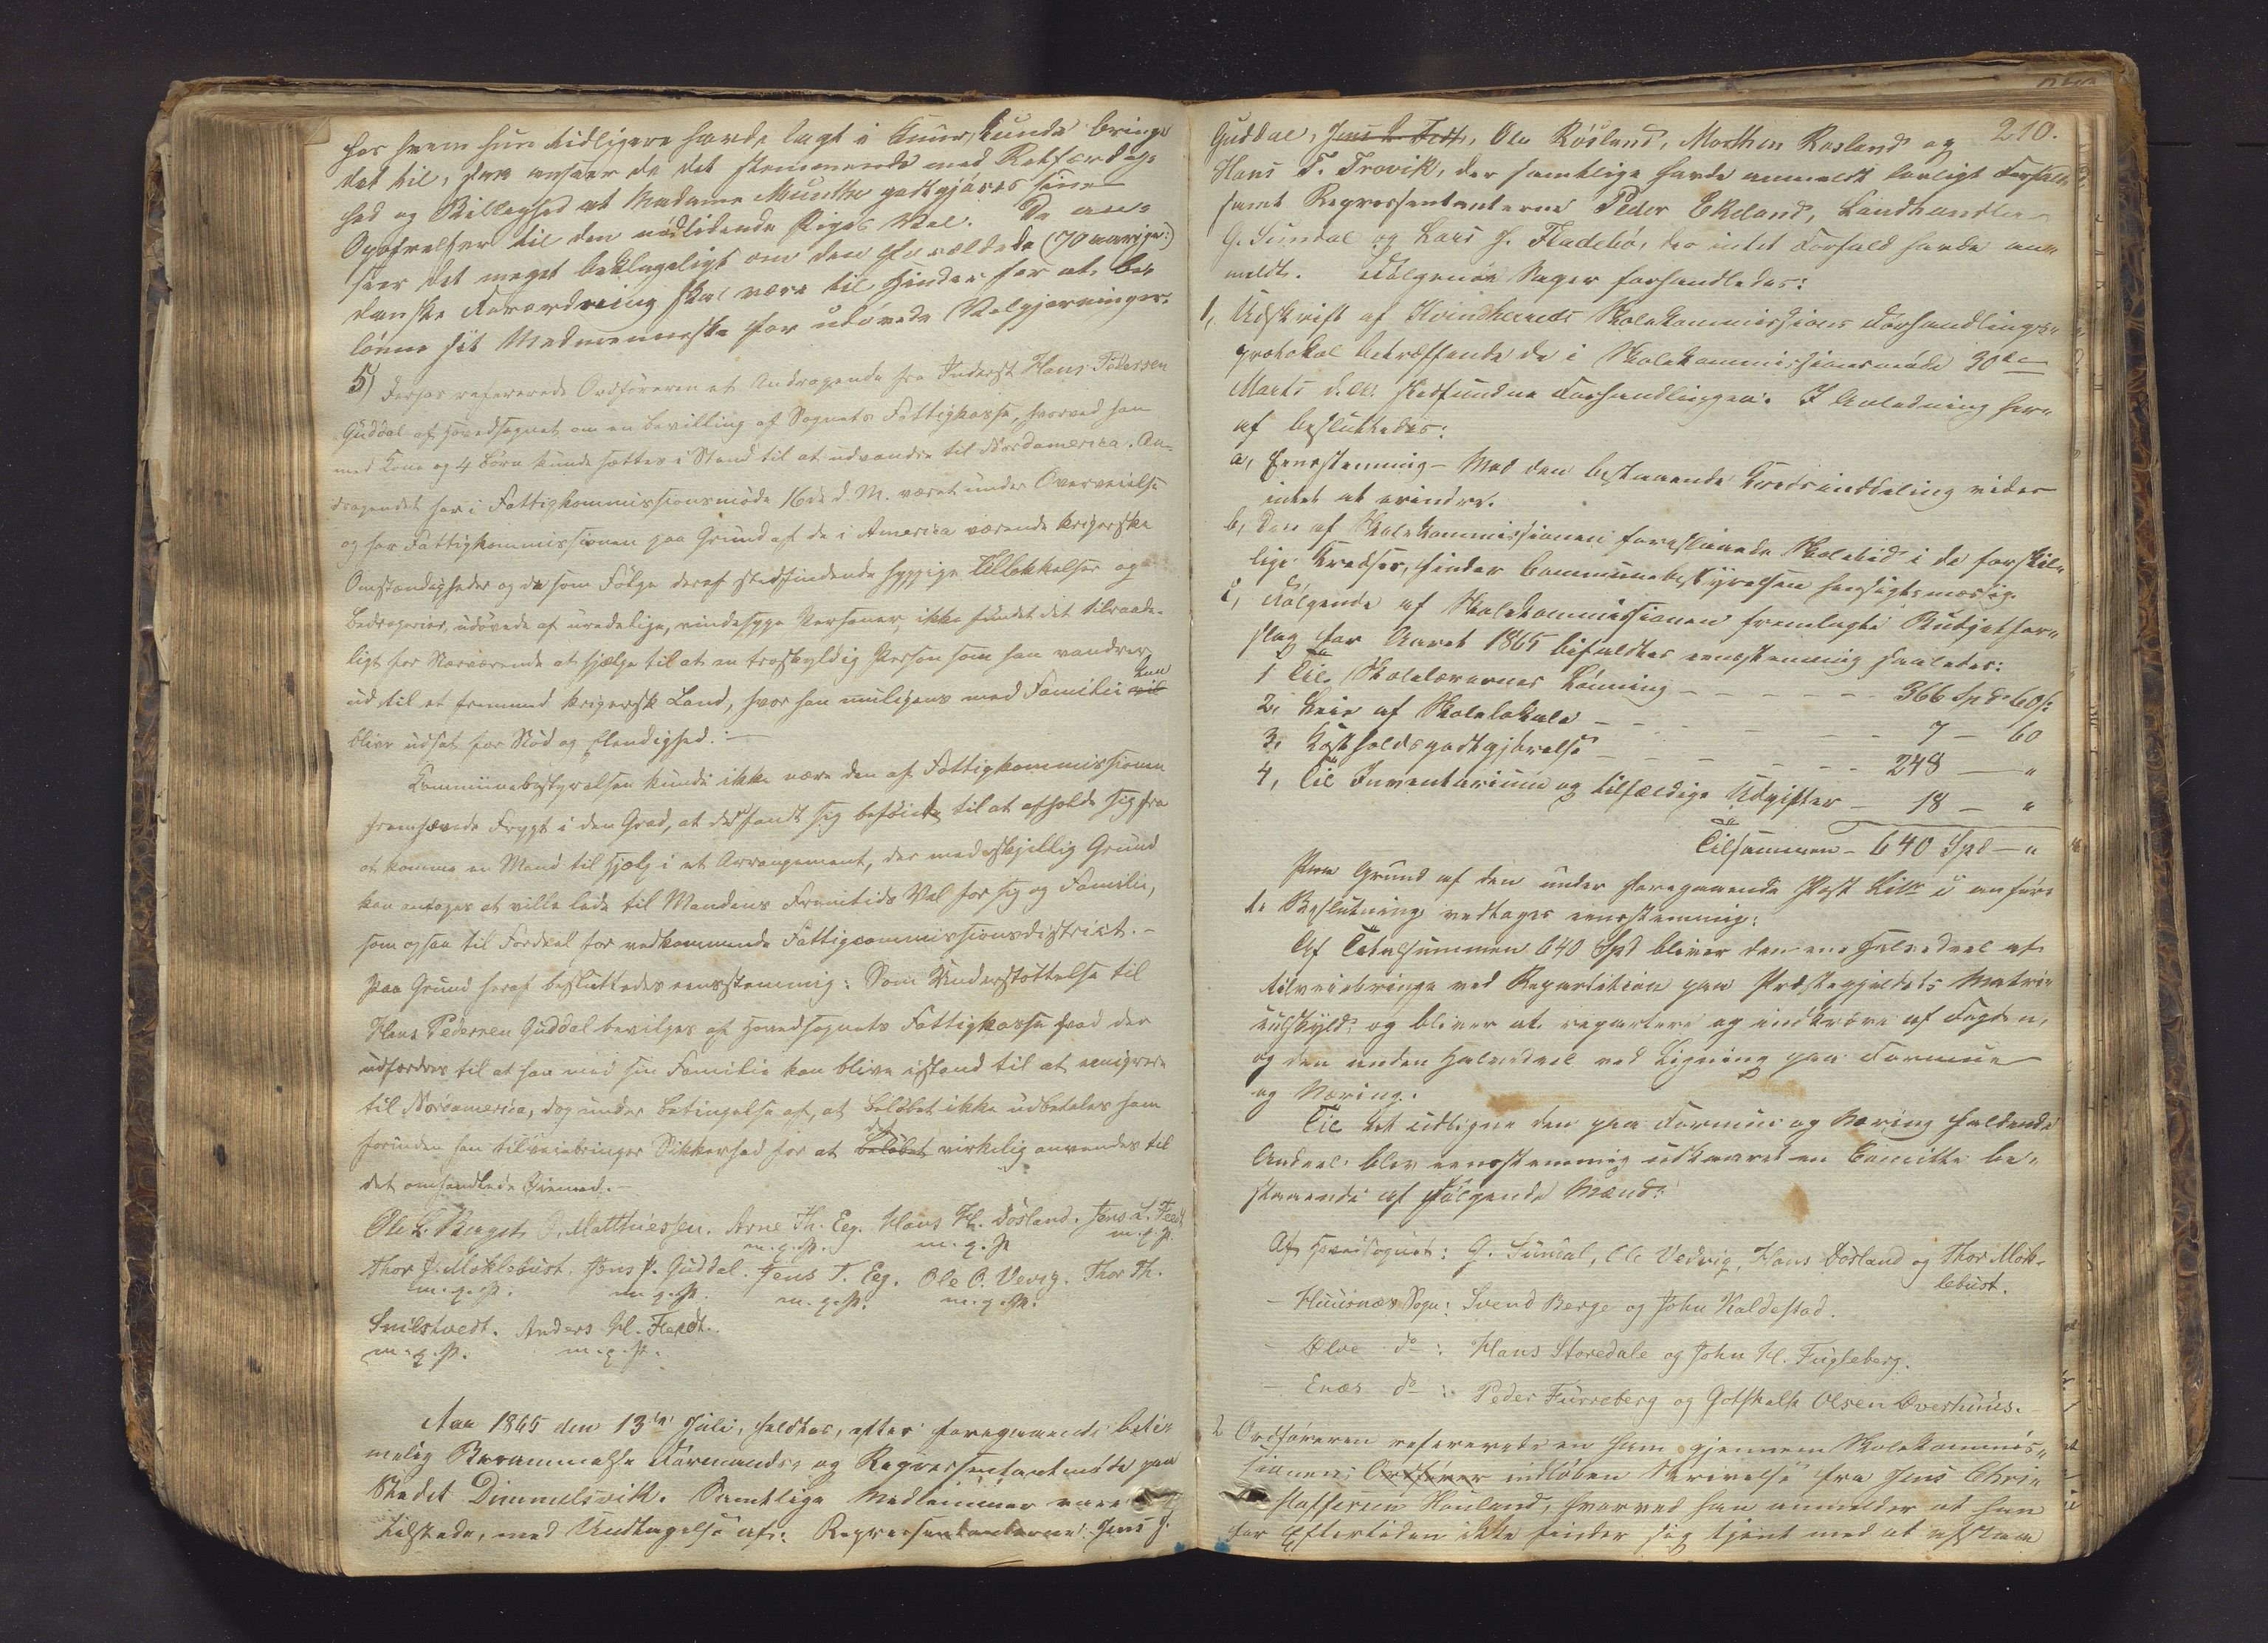 for hvem hun tidligere havde lagt i Kuur, kunde bringe
det til, saa ansaae de det stemmende med Retfærdig-
hed og Billighed at Madame Munthe godtgjöres sine
Opofrelser til den nödlidende Piges Vel. De an-
seer det meget beklageligt om den forældede (70 aarige)
danske Forordning skal være til Hinder for at be-
lönne sit Medmenneske for udövede Velgjerninger.
5) Derpaa refererede Ordföreren et Andragende fra Inderst Hans Pedersen
Guddal af Hovedsognet om en Bevilling af Sognets Fattigkasse, hvorved han
med Kone og 4 Börn kunde sættes i Stand til at udvandre til Nordamerica. An-
dragendet har i Fattigkommissionsmöde 16de d. M. været under Overveielse
og har Fattigkommissionen paa Grund af de i America værende krigerske
Omstændigheder og de som Fölge deraf stedfindende hyppige Tillokkelser og
Bedragerier, udövede af uredelige, vindesyge Personer, ikke fundet det tilraade-
ligt for Nærværende at hjælpe til at en troskyldig Person som han vandrer
ud til et fremmed krigersk Land, hvor han muligens med Familie kan
blive udsat for Nöd og Elendighed. —
Kommunebestyrelsen kunde ikke nære den af Fattigkommissionen
fremhævede Frygt i den Grad, at den fandt sig beföiet til at afholde sig fra
at komme en Mand til Hjælp i et Arrangement, der med skjellig Grund
kan antages at ville lede til Mandens Fremtids Vel for sig og Familie,
som ogsaa til Fordeel for vedkommende Fattigcommissionsdistrict. -
Paa Grund heraf besluttedes eensstemmig: Som Understöttelse til
Hans Pedersen Guddal bevilges af Hovedsognets Fattigkasse hvad der
udfordres til at han med sin Familie kan blive istand til at emigrere
til Nordamerica, dog under Betingelse af, at Belöbet ikke udbetales ham
forinden han tilveiebringer Sikkerhed for at det Belöbet virkelig anvendes til
det omhandlede Öiemed. -
Ole L. J. Matthiessen. Arne Th. Eeg. Hans H. Dösland. Jens L. Feet
m. q. P. m. q. P. m. q. P.
Thor J. Moklebust. Jens P. Guddal. Jens T. Eeg. Ole O. Vevig. Thor Th.
m. q. P. m. q. P. m. q. P. m. q. P.
Smilstvedt. Anders H. Flendt.
m. q. P. m. q. P.
Aar 1865 den 13de Juli, holdtes, efter foregaaende beti-
melig Berammelse Formands- og Repræsentantmöde paa
Stedet Dimmelsvik. Samtlige Medlemmer vare
tilstede, med Undtagelse af: Repræsentanterne Jens J.
210.
Guddal, Jens L. Feet, Ole Rösland, Morthen Rosland og
Hans T. Trovik, der samtlige havde anmeldt lovligt Forfald,
samt Repræsentanterne Peder Ekeland, Landhandler
G. Sundal og Lars J. Fladebö, der intet Forfald havde an-
meldt. Fölgende Sager forhandledes:
1, Udskrift af Kvindherreds Skolekommissions Forhandlings-
protokol betræffende de i Skolekommissionsmöde 30te
Marts d. A. stedfundne Forhandlinger. I Anledning her-
af besluttedes:
a, Eensstemmig - Mod den bestaaende Kredsinddeling vides
intet at erindre.
b, Den af Skolekommissionen foreslaaede Skoletid i de forskjel-
lige Kredse, finder Communebestyrelsen hensigtsmæssig.
c, Fölgende af Skolekommissionen fremlagte Budgetfor-
slag for Aaret 1865 bifaldtes eensstemmig saaledes:
1 Til Skolelærernes Lönning - - - - - - 366 Spd. 60 s:
2, Leie af Skolelokale - - - - - - 7 - 60
3, Kostholdsgodtgjörelse - - - - - - 248 — "
4, Til Inventarium og tilfældige Udgifter - 18 - "
Tilsammen - 640 Spd - "
Paa Grund af den under foregaaende Post Litr c anför-
te Beslutning vedtages eensstemmig:
Af Totalsummen 640 Spd bliver den ene Halvedeel at
tilveiebringe ved Repartition paa Præstegjeldets Matri-
culskyld og bliver at repartere og indkræve af Fogden,
og den anden Halvedeel ved Ligning paa Formue
og Næring.
Til at udligne den paa Formue og Næring faldende
Andeel blev eensstemmig udkaaret en Comitte be-
staaende af fölgende Mænd:
Af Hovedsognet: G. Sundal, Ole Vedvig, Hans Dösland og Thor Mok-
lebust.
- Huusnæs Sogn: Svend Berge og John Kaldestad.
- Ølve do: Hans Storedale og John H. Fugleberg.
- Enæs do: Peder Furreberg og Gotskalk Olsen Overhuus.
2 Ordföreren refererede en ham gjennem Skolekommis-
sionens Ordförer indloben Skrivelse fra Jens Chri-
stoffersen Houland, hvorved han anmelder at han
for Eftertiden ikke finder sig tjent med at afstaae